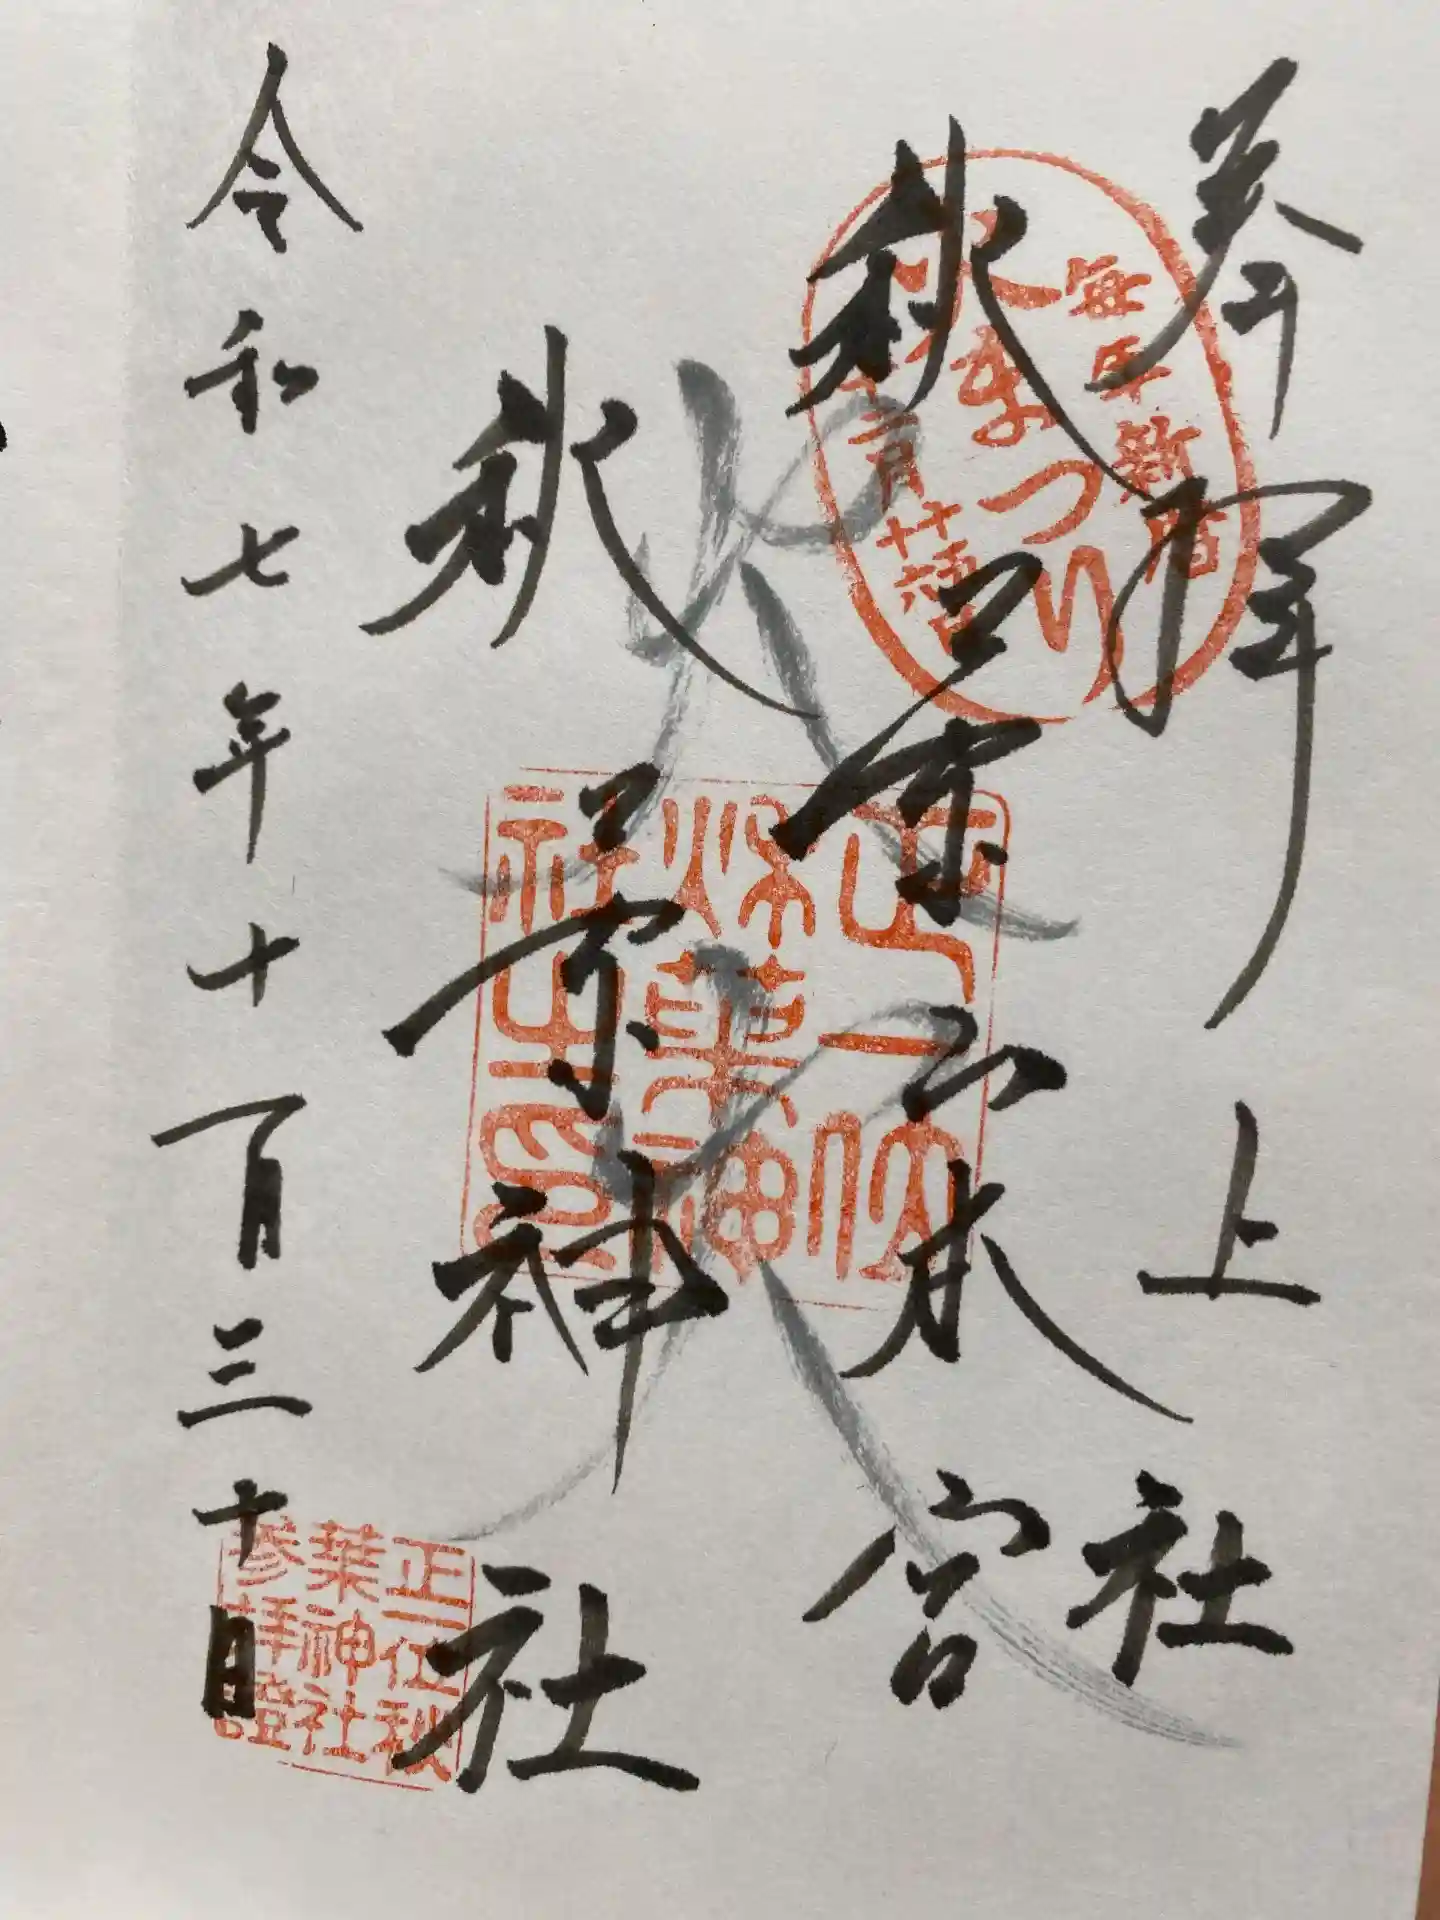 奉拝
上社
秋葉山本宮
秋葉神社
令和七年十一月三十日
秋まつり
毎年新暦
正一位
秋葉神
社之印
正一位秋
葉神社
参拝證